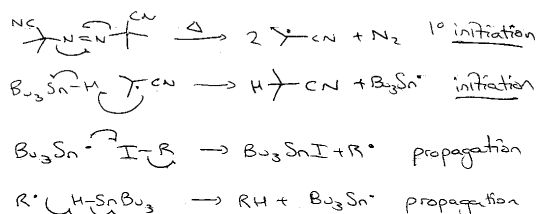 NC N=N CN Δ → 2 •CN + N2 1° initiation
Bu3Sn-H •CN → H CN + Bu3Sn• initiation
Bu3Sn• I-R → Bu3SnI + R• propagation
R• H-SnBu3 → RH + Bu3Sn• propagation